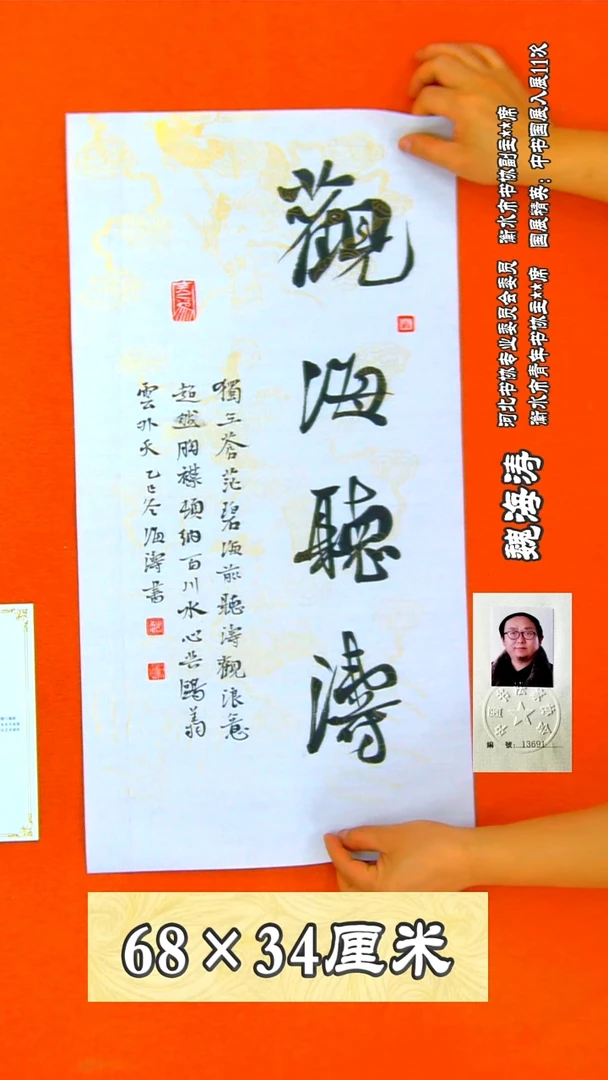 觀海聽濤
獨立蒼茫碧海前聽濤觀浪意
超然胸襟頓納百川水心共鷗翁
雲外天乙巳冬海濤書
河北书协专业委员会委员 衡水市书协副主**席
衡水市青年书协主**席 国展精英:中书国展入展11次
魏海涛
編 號:13691
68×34厘米